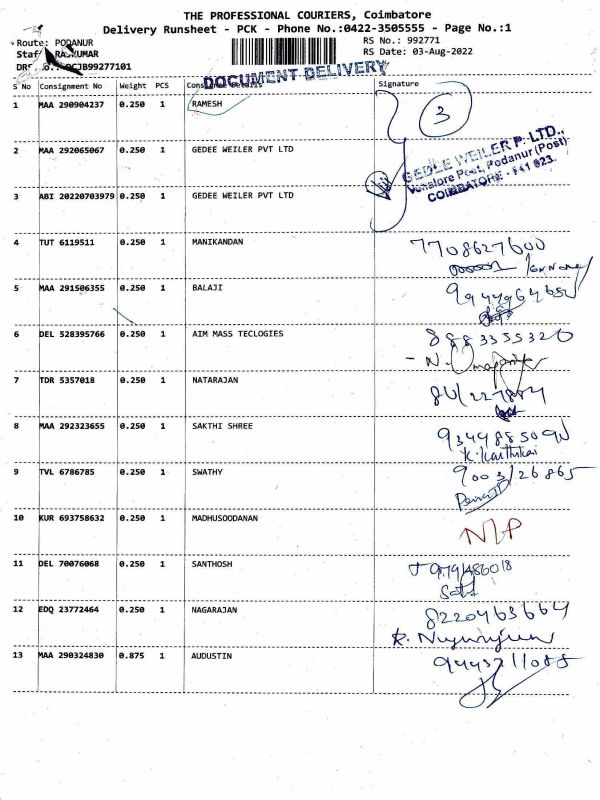 THE PROFESSIONAL COURIERS, Coimbatore
Delivery Runsheet - PCK - Phone No.:0422-3505555 - Page No.:1
Route: PODANUR
RS No.: 992771
Staff RAJKUMAR
RS Date: 03-Aug-2022
99277101
DOCUMENT DELIVERY
S No Consignment No Weight PCS Consignee Details Signature
1 MAA 290904237 0.250 1 RAMESH
3
2 MAA 292065067 0.250 1 GEDEE WEILER PVT LTD
GEDEE WEILER P. LTD.,
Vellalore Post, Podanur (Post)
COIMBATORE - 641 023.
3 ABI 20220703979 0.250 1 GEDEE WEILER PVT LTD
4 TUT 6119511 0.250 1 MANIKANDAN 7708627600
5 MAA 291506355 0.250 1 BALAJI
6 DEL 528395766 0.250 1 AIM MASS TECLOGIES 8883355320
7 TDR 5357018 0.250 1 NATARAJAN
8 MAA 292323655 0.250 1 SAKTHI SHREE
K. Karthikai
9 TVL 6786785 0.250 1 SWATHY 9003126865
10 KUR 693758632 0.250 1 MADHUSOODANAN N/P
11 DEL 70076068 0.250 1 SANTHOSH
12 EDQ 23772464 0.250 1 NAGARAJAN 8220463664
13 MAA 290324830 0.875 1 AUDUSTIN 9443211088